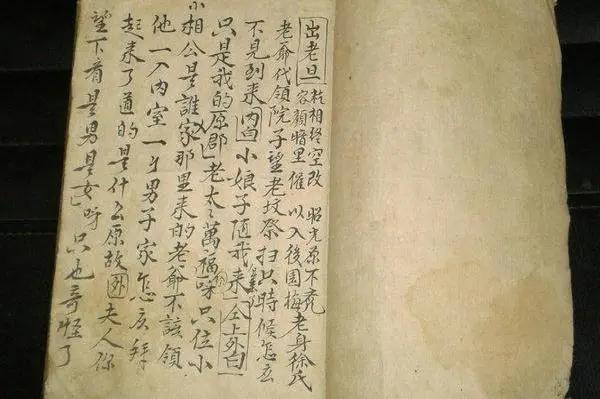 出老旦 相終空改 容顏暗里催 昭光原不 以入後園梅 老身徐氏
老爺代領院子望老坟祭扫只時候怎么
不見到来内白小娘子随我来仝上外白
只是我的原郡老太々萬福呀只位小
小相公是誰家那里来的老爺不該領
他一入内室一 男子家怎庅拜
起来了道的是什么原故外夫人你
望下看是男是女呀只也奇怪了